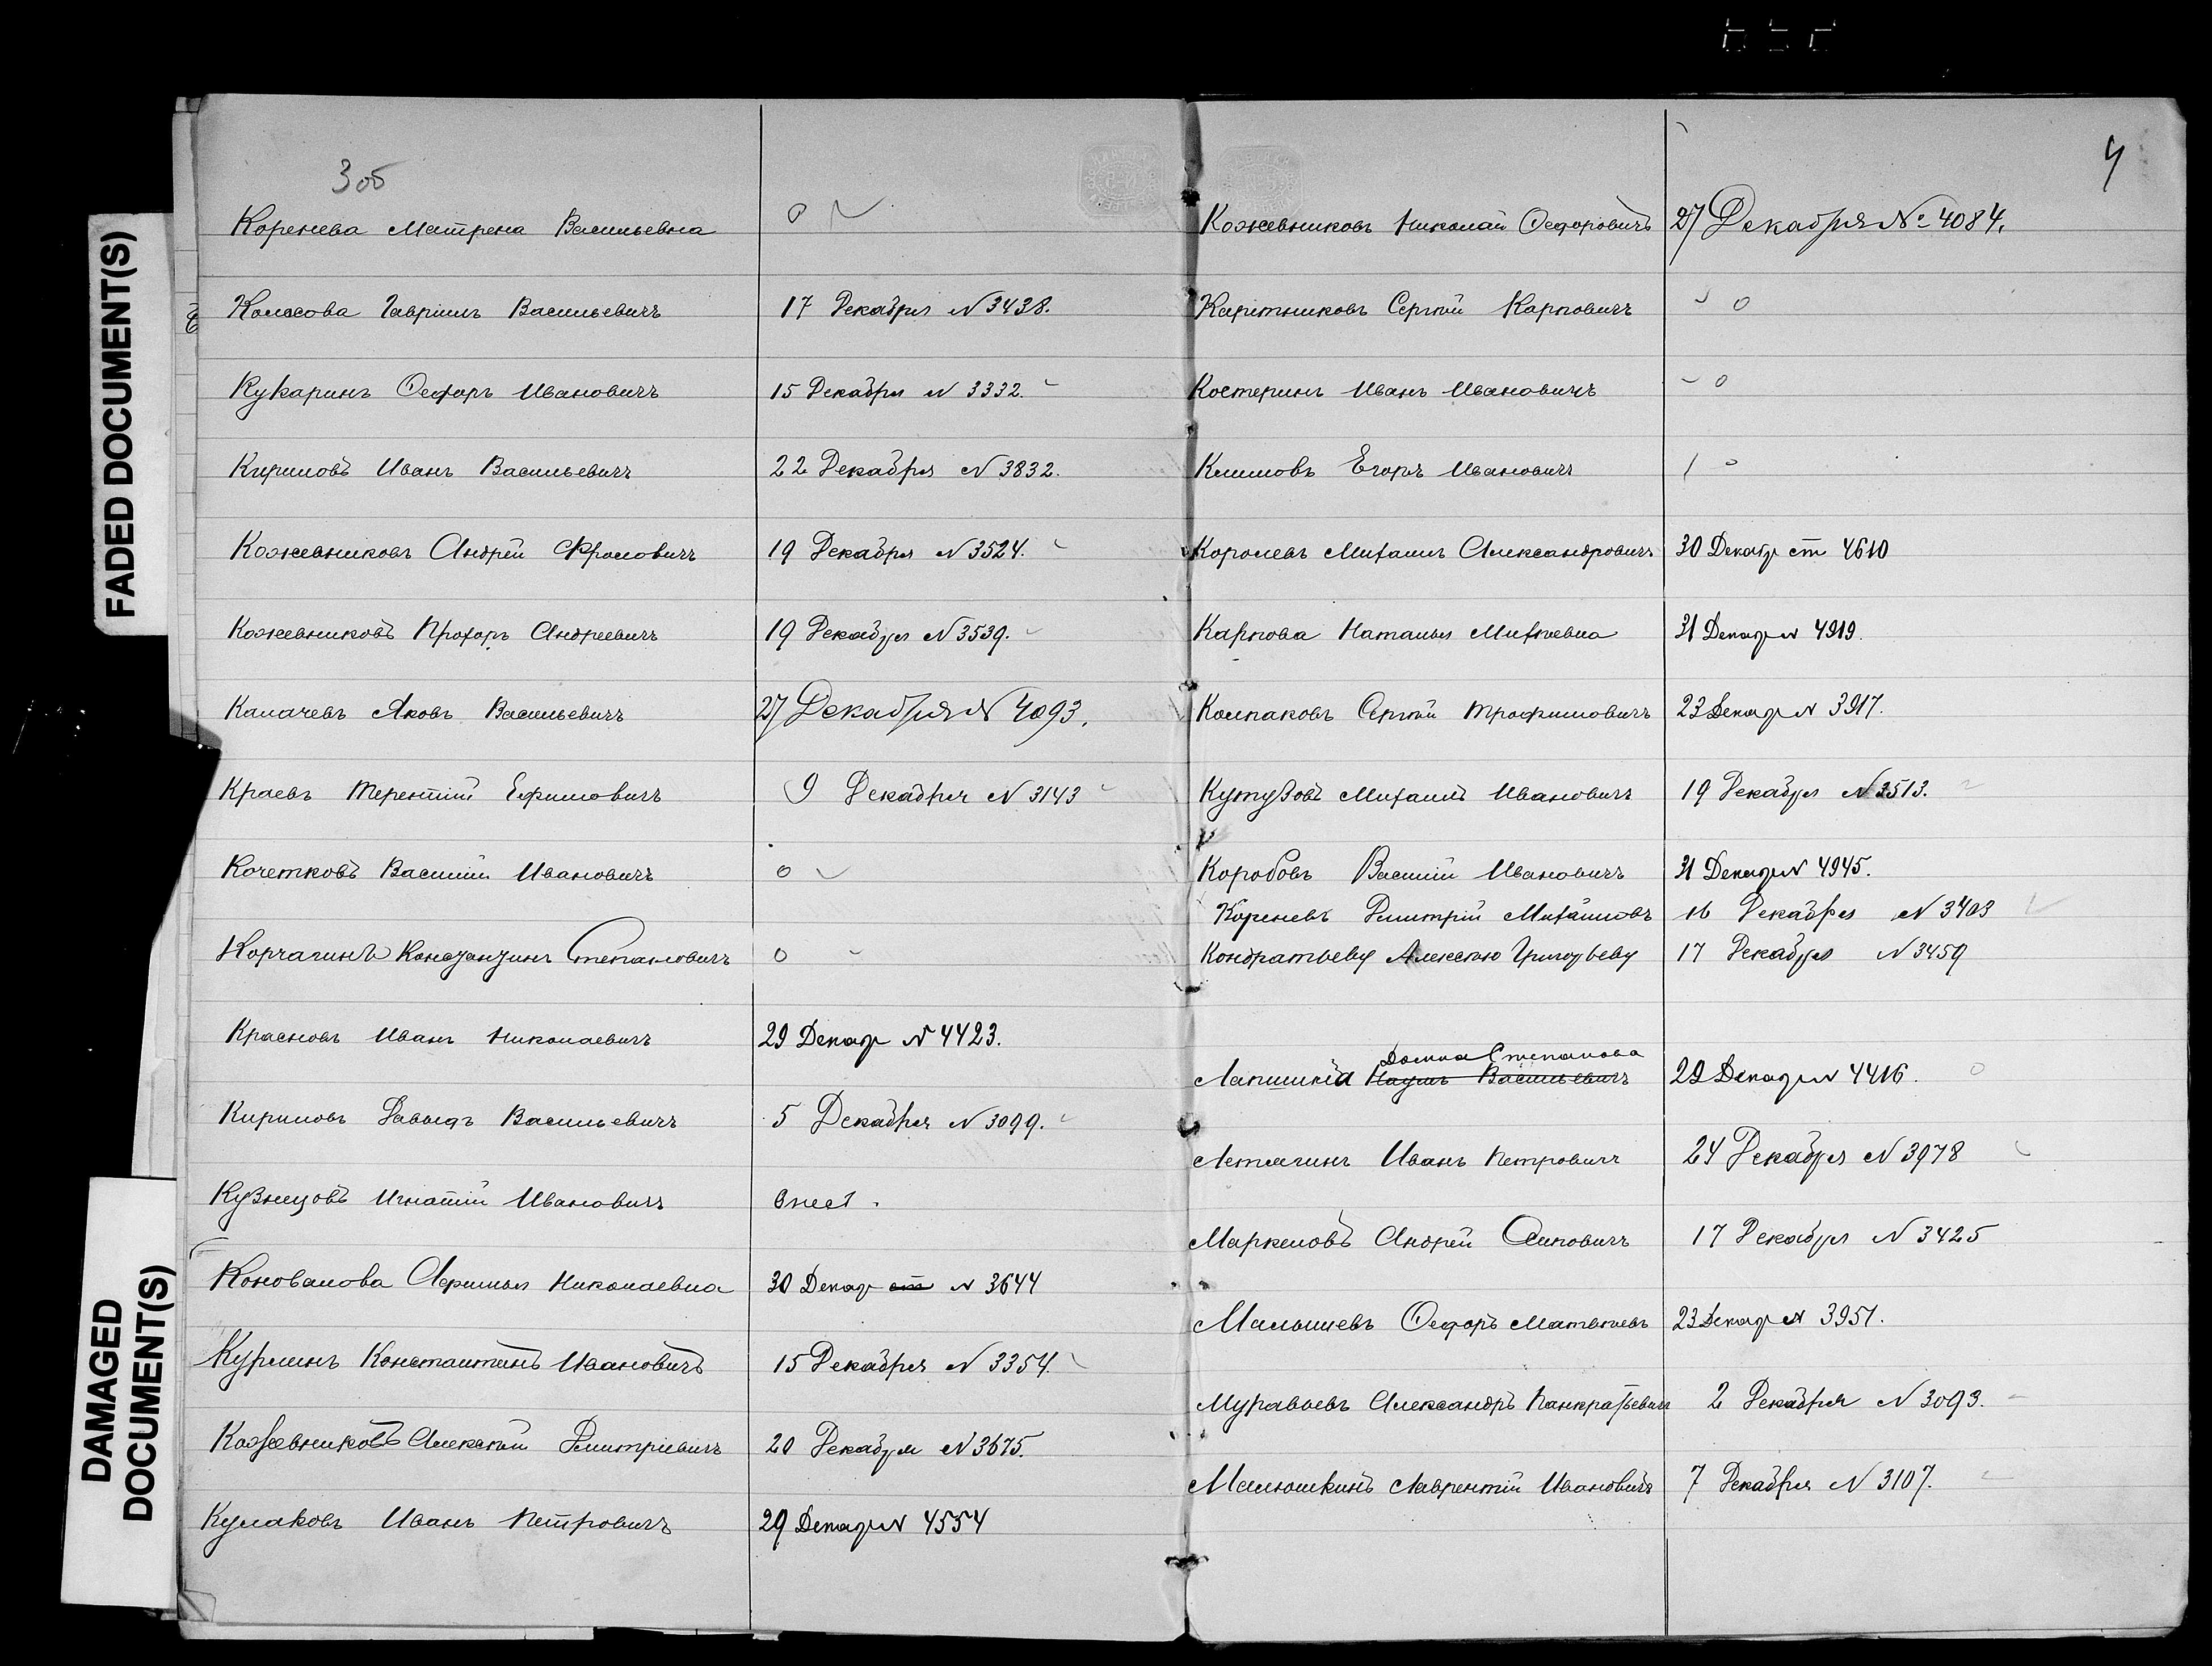 3 об
Коренева Матрена Васильевна 0
Колосова Гавріилъ Васильевичъ 17 Декабря N 3438.
Кукаринъ Ѳедоръ Ивановичъ 15 Декабря N 3332.
Кириловъ Иванъ Васильевичъ 22 Декабря N 3832.
Кожевниковъ Андрей Фроловичъ 19 Декабря N 3524.
Кожевниковъ Прохоръ Андреевичъ 19 Декабря N 3539.
Калачевъ Яковъ Васильевичъ 27 Декабря N 4093.
Краевъ Терентій Ефимовичъ 9 Декабря N 3143
Кочетковъ Василій Ивановичъ 0
Корчагинъ Константинъ Степановичъ 0
Красновъ Иванъ Николаевичъ 29 Декабр N 4423.
Кириловъ Давыдъ Васильевичъ 5 Декабря N 3099.
Кузнецовъ Игнатій Ивановичъ
Коновалова Афимья Николаевна 30 Декабр ст N 3644
Курлинъ Константинъ Ивановичъ 15 Декабря N 3354.
Кожевниковъ Алексѣй Дмитріевичъ 20 Декабря N 3675.
Кулаковъ Иванъ Петровичъ 29 Декабр N 4554
4
Кожевниковъ Николай Ѳедоровичъ 27 Декабря № 4084.
Каретниковъ Сергѣй Карповичъ 0
Костеринъ Иванъ Ивановичъ 0
Климовъ Егоръ Ивановичъ 0
Королевъ Михаилъ Александровичъ 30 Декабр ст 4610
Карпова Наталья Михѣевна 31 Декабр N 4919.
Колпаковъ Сергѣй Трофимовичъ 23 Декабр N 3917.
Кутузовъ Михаилъ Ивановичъ 19 Декабря N 3513.
Коробовъ Василій Ивановичъ 31 Декабр N 4945.
Кореневъ Дмитрій Михайловъ 16 Декабря N 3403
Кондратьеву Алексѣю Григорьеву 17 Декабря N 3459
Домна Степанова
Лапшина Наумъ Васильевичъ 29 Декабр N 4416.
Летягинъ Иванъ Петровичъ 24 Декабря N 3978
Маркеловъ Андрей Осиповичъ 17 Декабря N 3425
Малышевъ Ѳедоръ Матвѣевъ 23 Декабр N 3951.
Муравьевъ Александръ Панкратьевичъ 2 Декабря N 3093.
Малюшкинъ Лаврентій Ивановичъ 7 Декабря N 3107.
FADED DOCUMENT(S)
DAMAGED
DOCUMENT(S)